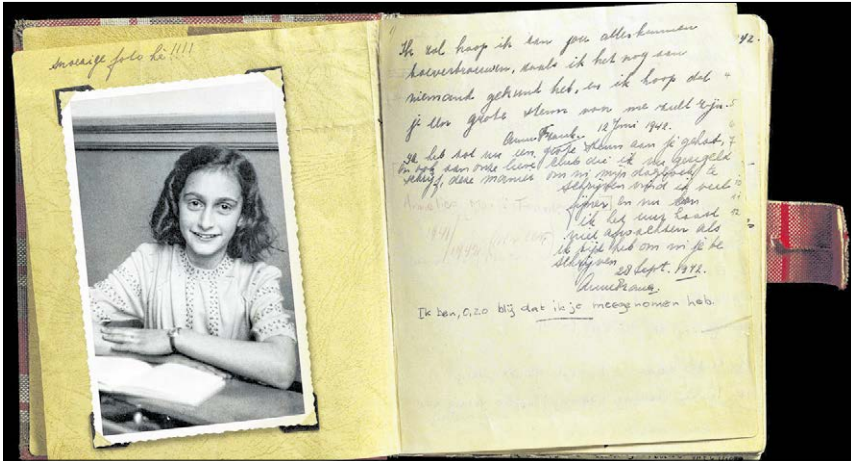 snoezige foto hè!!!!
Ik zal hoop ik aan jou alles kunnen
toevertrouwen, zoals ik het nog aan
niemand gekund heb, en ik hoop dat
je een grote steun van me zult zijn.
Anne Frank. 12 Juni 1942.
Ik heb tot nu een grote steun aan je gehad,
en ook aan onze lieve club die ik nu geregeld
schrijf, deze manier om in mijn dagboek te
schrijven vind ik veel
fijner en nu kan
ik het uur haast
niet afwachten als
ik tijd heb om in je te
schrijven.
28 Sept. 1942.
Anne Frank.
Ik ben, o, zo blij dat ik je meegenomen heb.
42.